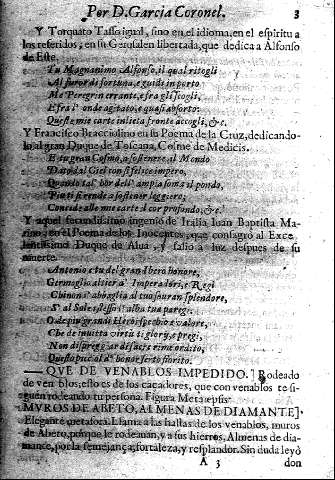 Por D. Garcia Coronel. 3
Y Torquato Tasso igual, sino en el idioma, en el espiritu a
los referidos, en su Gerusalen libertada, que dedica a Alfonso
de Este.
Tu Magnanimo Alfonso, il qual ritogli
Al furor di fortuna, e guidi in porto
Me Peregrin errante, e fra gli scogli,
E fra l'onde agitato, e quasi absorto:
Queste mie carte in lieta fronte accogli, &c.
Y Francisco Bracciolino en su Poema de la Cruz, dedicando-
lo al gran Duque de Toscana, Cosme de Medicis.
E tu gran Cosmo, a sostenere al Mondo
Dato dal Ciel con si felice impero,
Quando tal' hor dell' ampia soma il pondo,
Piu ti si rende a sostener leggiero;
cor profondo; &c.
Y aquel fecundissimo ingenio de Italia Iuan Baptista Ma-
rino, en el Poema de los Inocentes, que consagró al Exce-
lentissimo Duque de Alua, y salió a luz despues de su
muerte.
Antonio, e tu del grand' Ibero honore,
Germoglio altier d' Imperadori, e Regi
Ch'inona' abbaglia al tuo splendore,
S' al Sole, stesso i' alba tue pregi.
O de piu grandi Heroi specchio e valore,
Che de inuitta virtù ti glori, e pregi,
Non dispreggiar
honor serto fiorito.
— QVE DE VENABLOS IMPEDIDO.] Rodeado
de venablos; esto es de los caçadores, que con venablos te si-
guen rodeando tu persona. Figura Metalepsis.
MVROS DE ABETO, ALMENAS DE DIAMANTE.]
Elegante metafora. Llama a las hastas de los venablos, muros
de Abeto, porque le rodeauan, y a sus hierros, Almenas de dia-
mante, por la semejança, fortaleza, y resplandor. Sin duda leyò
A 3 don